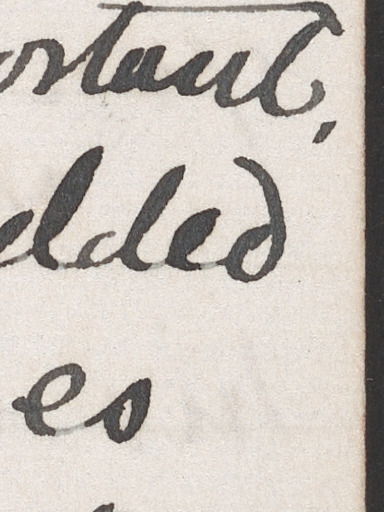 ortant,
dded
es